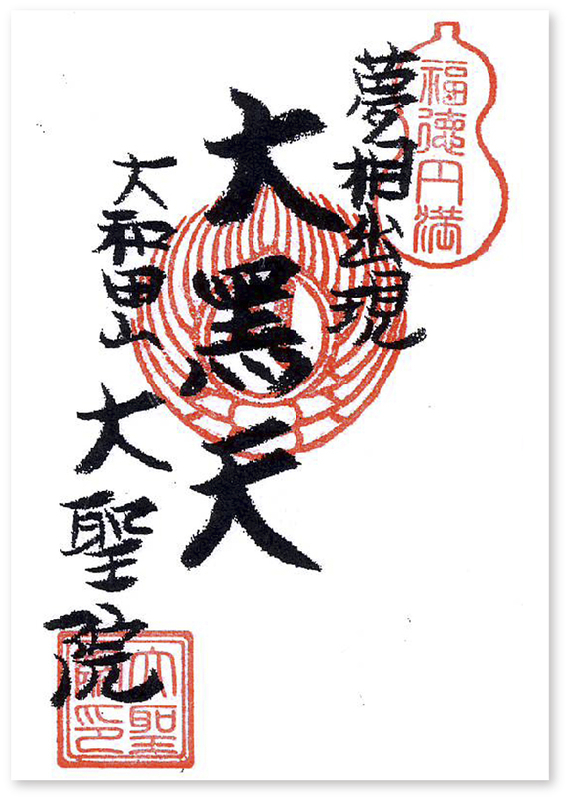 福徳円満
夢相出現
大黑天
大和田山
大聖院
大聖
院印